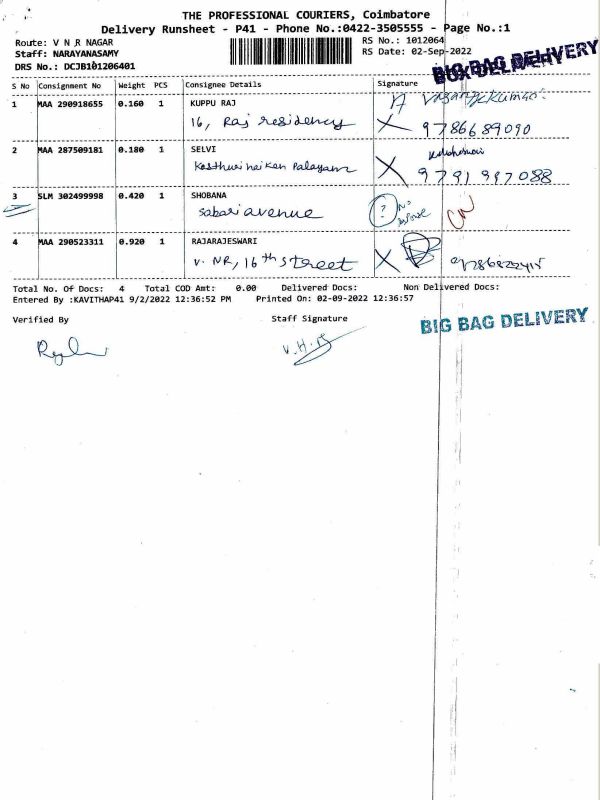 THE PROFESSIONAL COURIERS, Coimbatore
Delivery Runsheet - P41 - Phone No.:0422-3505555 - Page No.:1
Route: V N R NAGAR
Staff: NARAYANASAMY
DRS No.: DCJB101206401
RS No.: 1012064
RS Date: 02-Sep-2022
BIG BAG DELIVERY
S No Consignment No Weight PCS Consignee Details Signature
1 MAA 290918655 0.160 1 KUPPU RAJ
16, Raj residency 9786689090
2 MAA 287509181 0.180 1 SELVI
Kasthuri naiken Palayam 9791997088
3 SLM 302499998 0.420 1 SHOBANA
sabari avenue ?
4 MAA 290523311 0.920 1 RAJARAJESWARI
V. NR, 16th street
Total No. Of Docs: 4 Total COD Amt: 0.00 Delivered Docs: Non Delivered Docs:
Entered By :KAVITHAP41 9/2/2022 12:36:52 PM Printed On: 02-09-2022 12:36:57
Verified By Staff Signature
BIG BAG DELIVERY